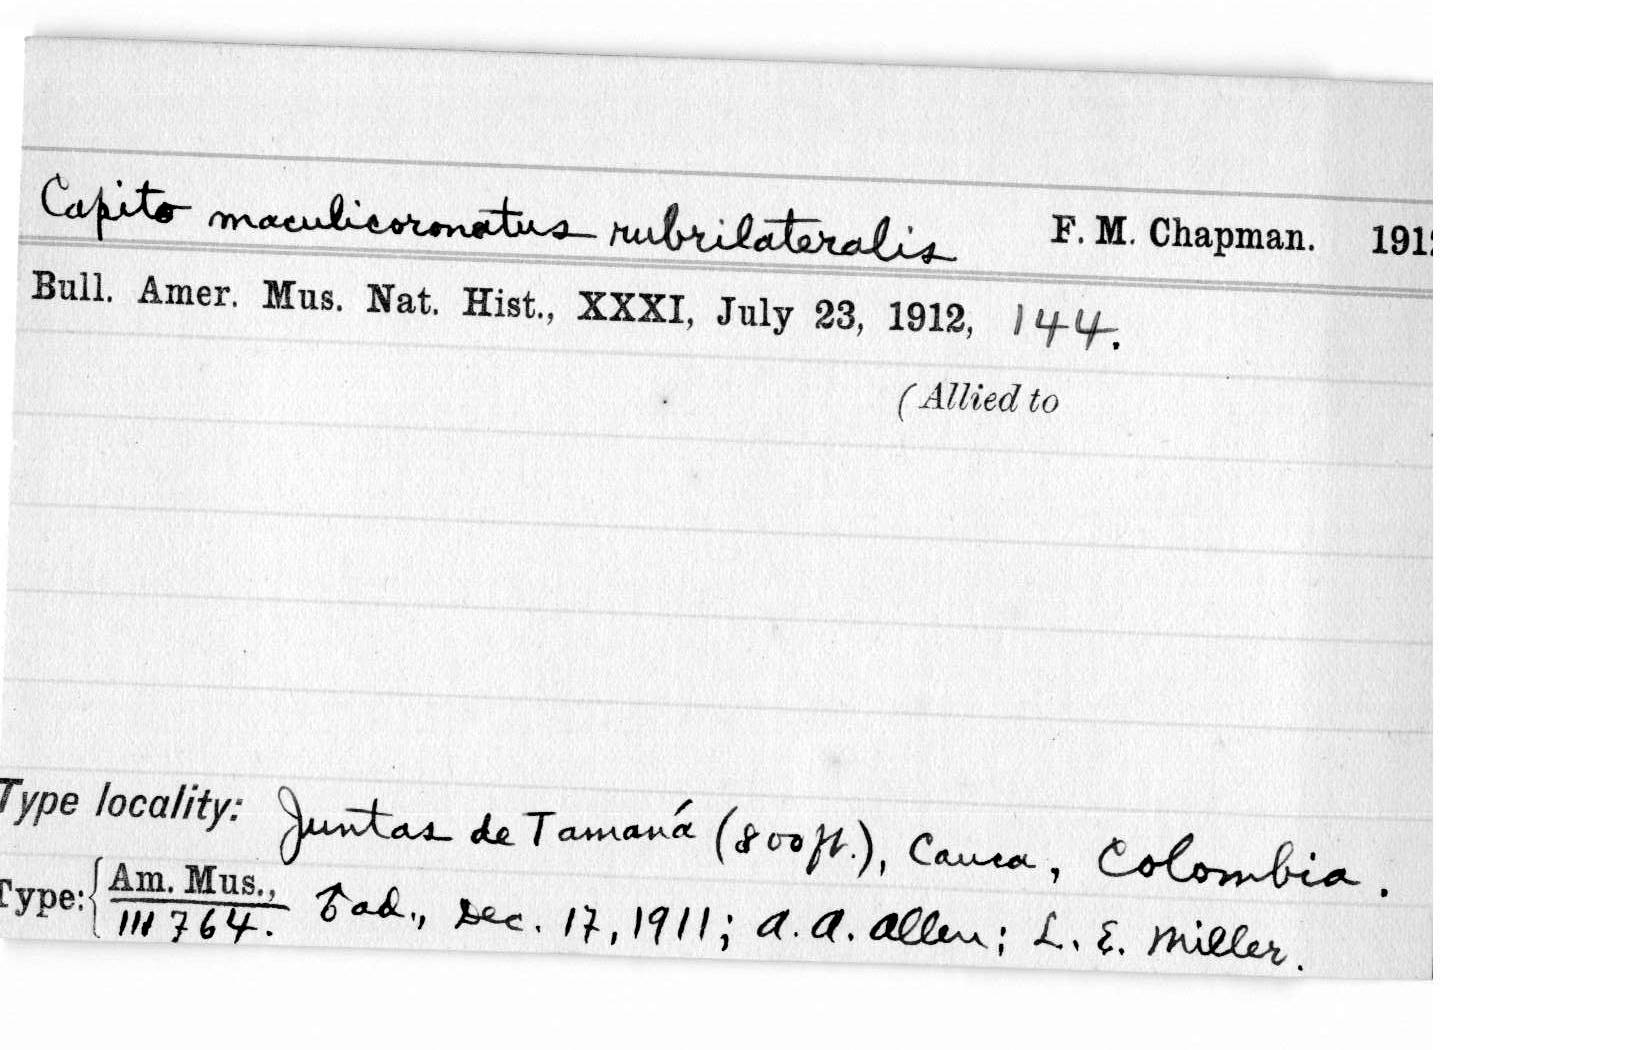 Capito maculicoronatus rubrilateralis F. M. Chapman. 191
Bull. Amer. Mus. Nat. Hist., XXXI, July 23, 1912, 144.
(Allied to
Type locality: Juntas de Tamaná (800 ft.), Cauca, Colombia.
Type: { Am. Mus., ♂ ad., Dec. 17, 1911; A. A. Allen; L. E. Miller.
111764.